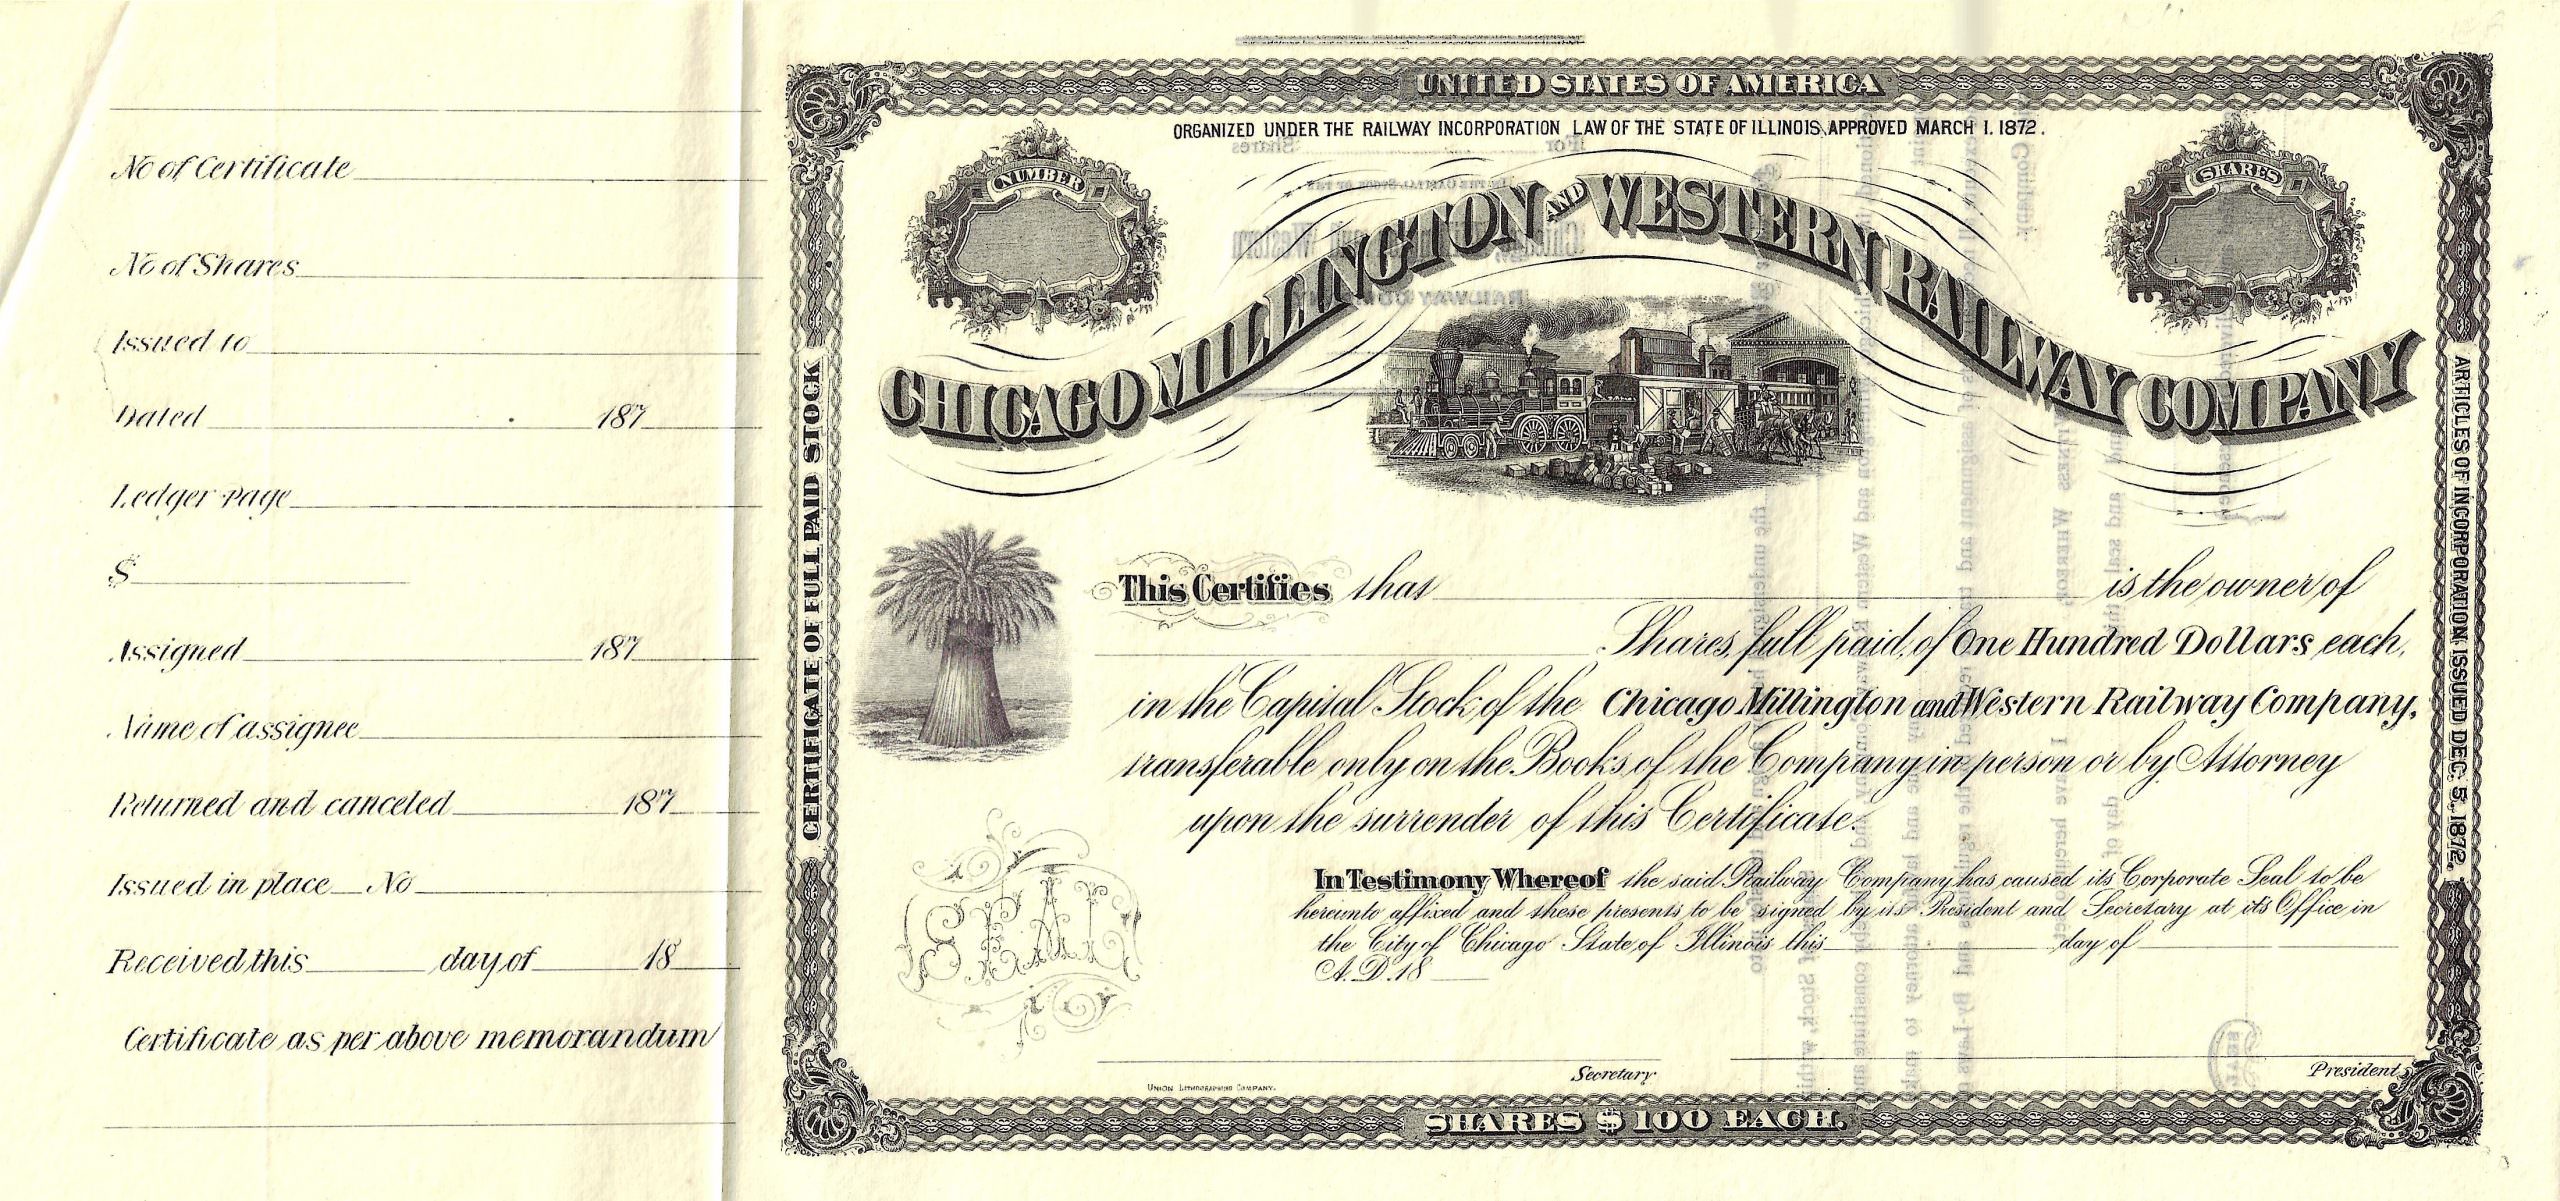 No of Certificate
No of Shares
Issued to
Dated 187
Ledger page
$
Assigned 187
Name of assignee
Returned and canceled 187
Issued in place No
Received this day of 18
Certificate as per above memorandum
UNITED STATES OF AMERICA
ORGANIZED UNDER THE RAILWAY INCORPORATION LAW OF THE STATE OF ILLINOIS, APPROVED MARCH 1. 1872.
NUMBER
SHARES
CHICAGO MILLINGTON AND WESTERN RAILWAY COMPANY
CERTIFICATE OF FULL PAID STOCK
ARTICLES OF INCORPORATION, ISSUED DEC. 5, 1872.
This Certifies that is the owner of
Shares, full paid, of One Hundred Dollars each,
in the Capital Stock of the Chicago Millington and Western Railway Company,
transferable only on the Books of the Company in person or by Attorney
upon the surrender of this Certificate.
In Testimony Whereof the said Railway Company has caused its Corporate Seal to be
hereunto affixed and these presents to be signed by its President and Secretary at its Office in
the City of Chicago State of Illinois this day of
A.D. 18
SEAL
Secretary
President
UNION LITHOGRAPHING COMPANY.
SHARES $100 EACH.